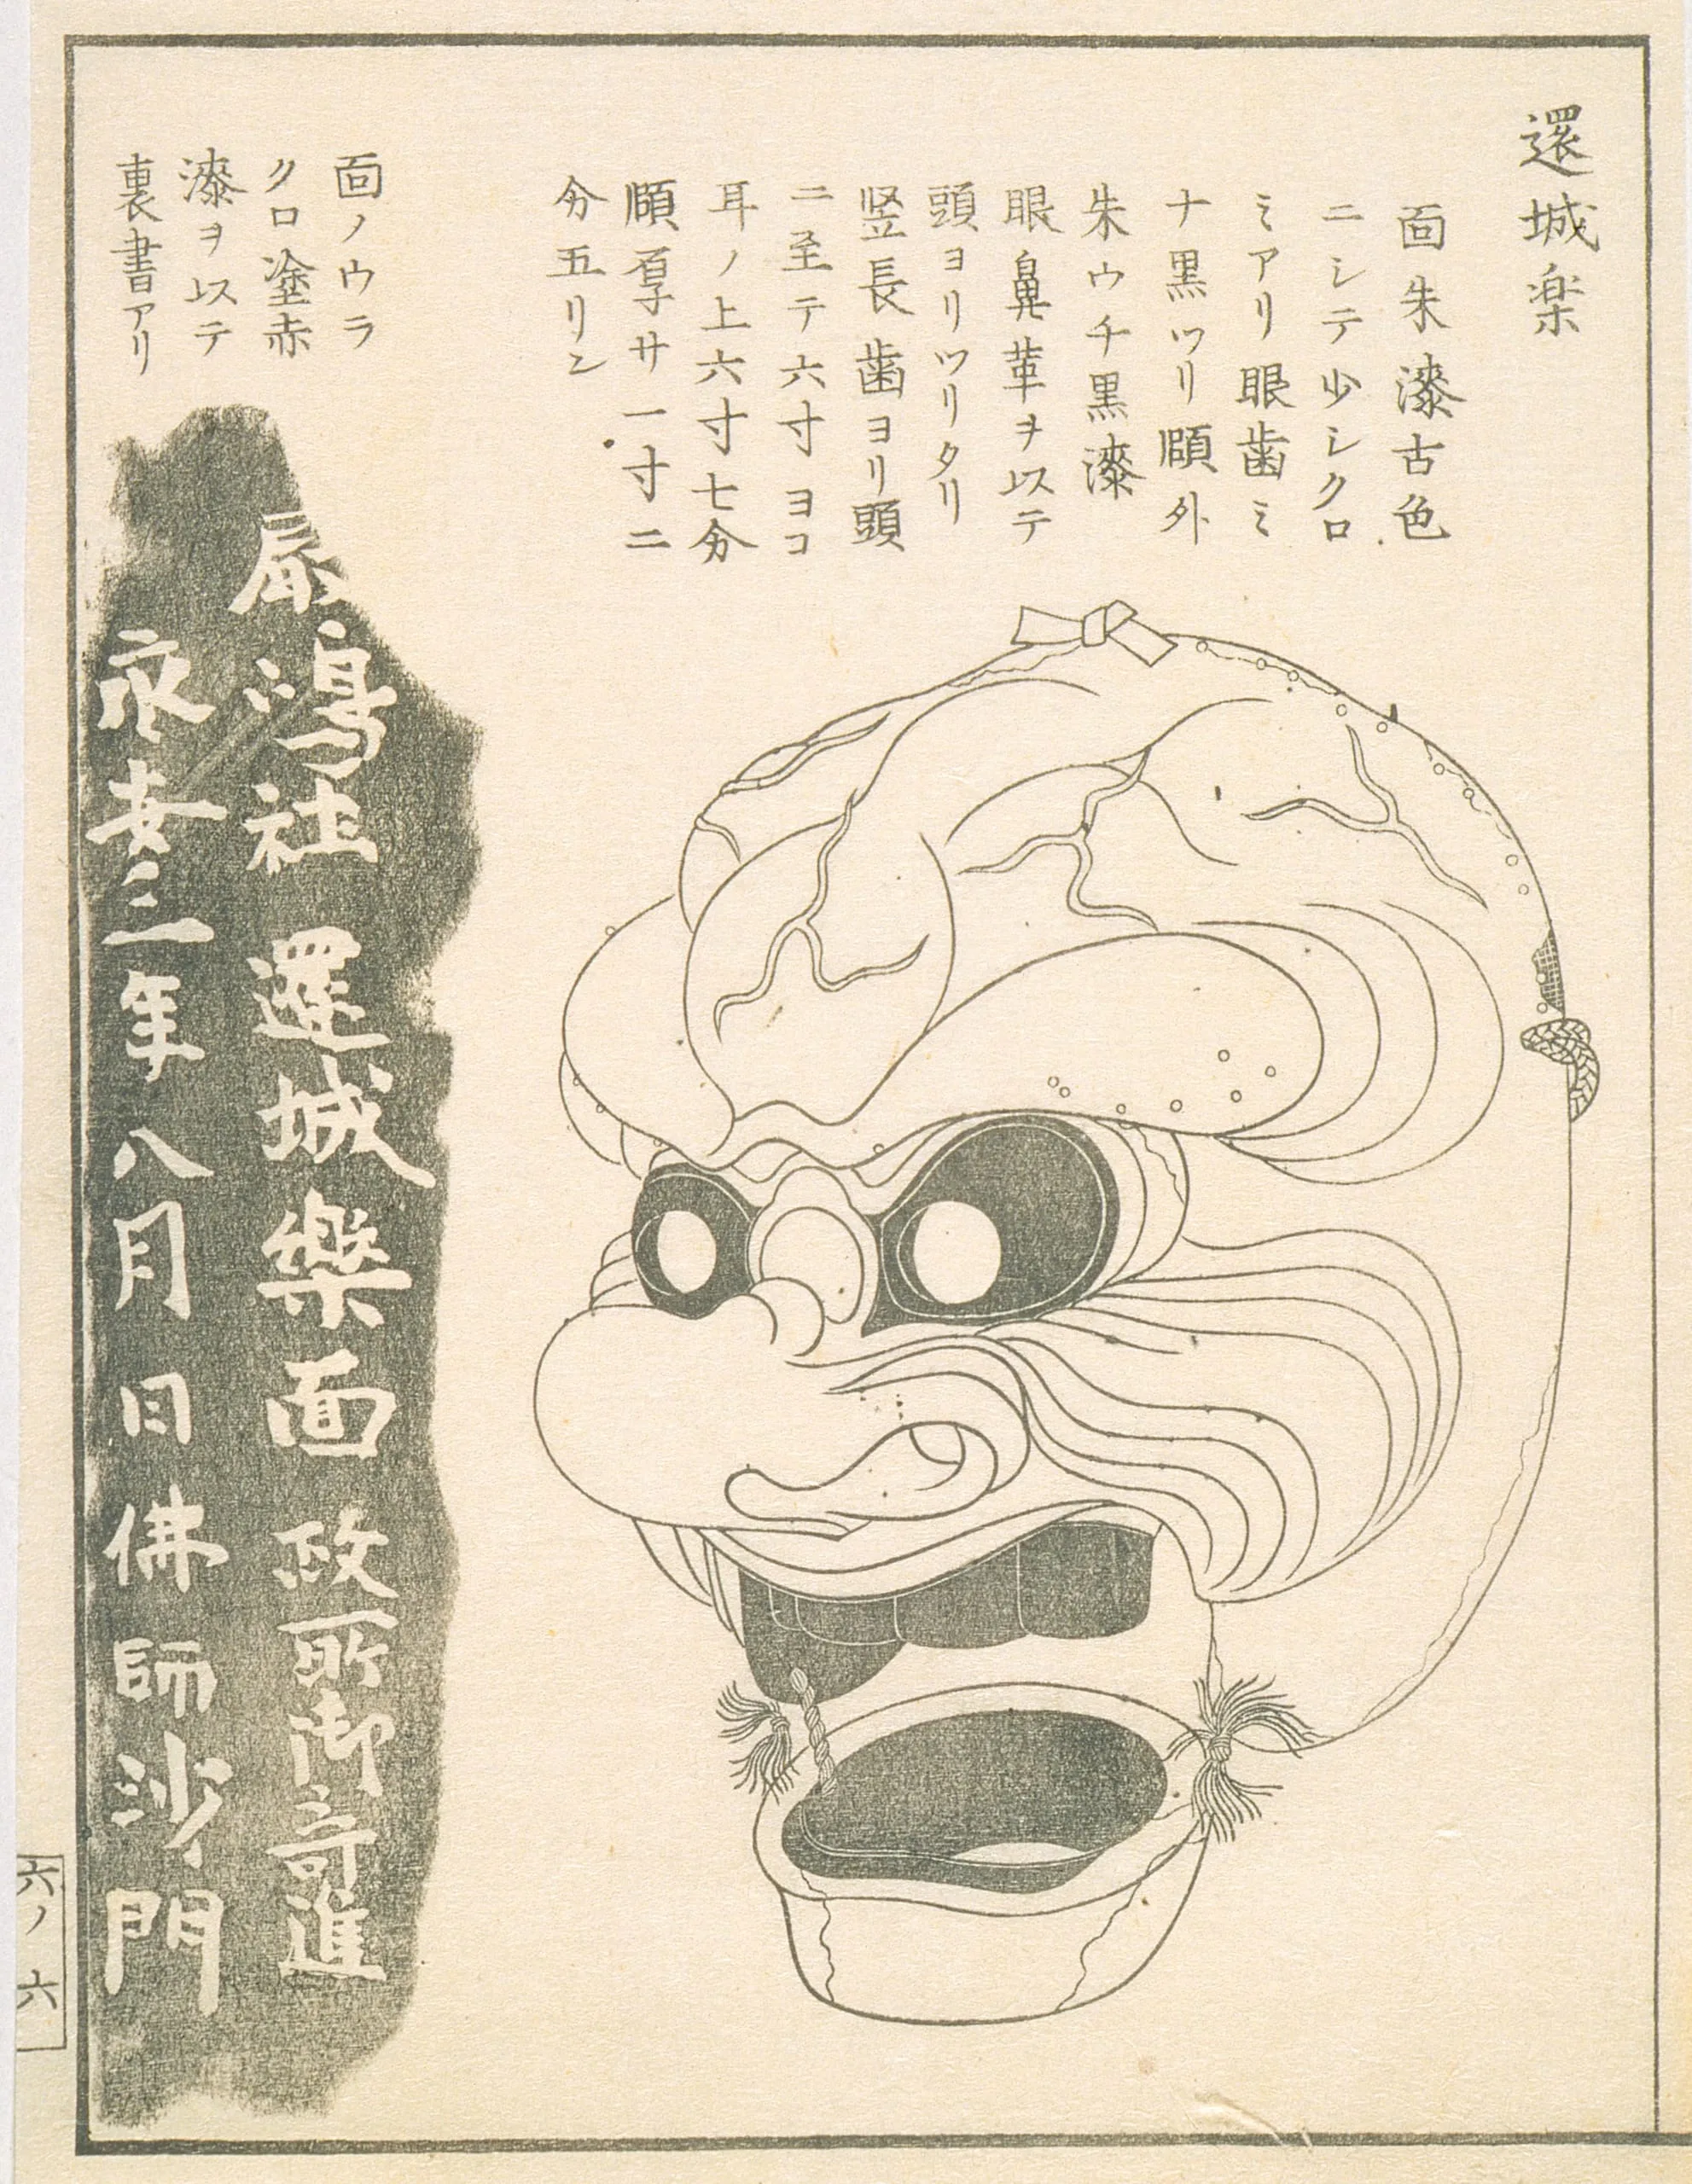 還城楽
面朱漆古色
ニシテ少シクロ
ミアリ眼歯ミ
ナ黒ツリ頤外
朱ウチ黒漆
眼鼻革ヲ以テ
頭ヨリツリタリ
竪長歯ヨリ頭
ニ至テ六寸ヨコ
耳ノ上六寸七分
頤厚サ一寸二
分五リン
面ノウラ
クロ塗赤
漆ヲ以テ
裏書アリ
嶋社還城樂面政所御寄進
承安三年八月日佛師沙門
六ノ六